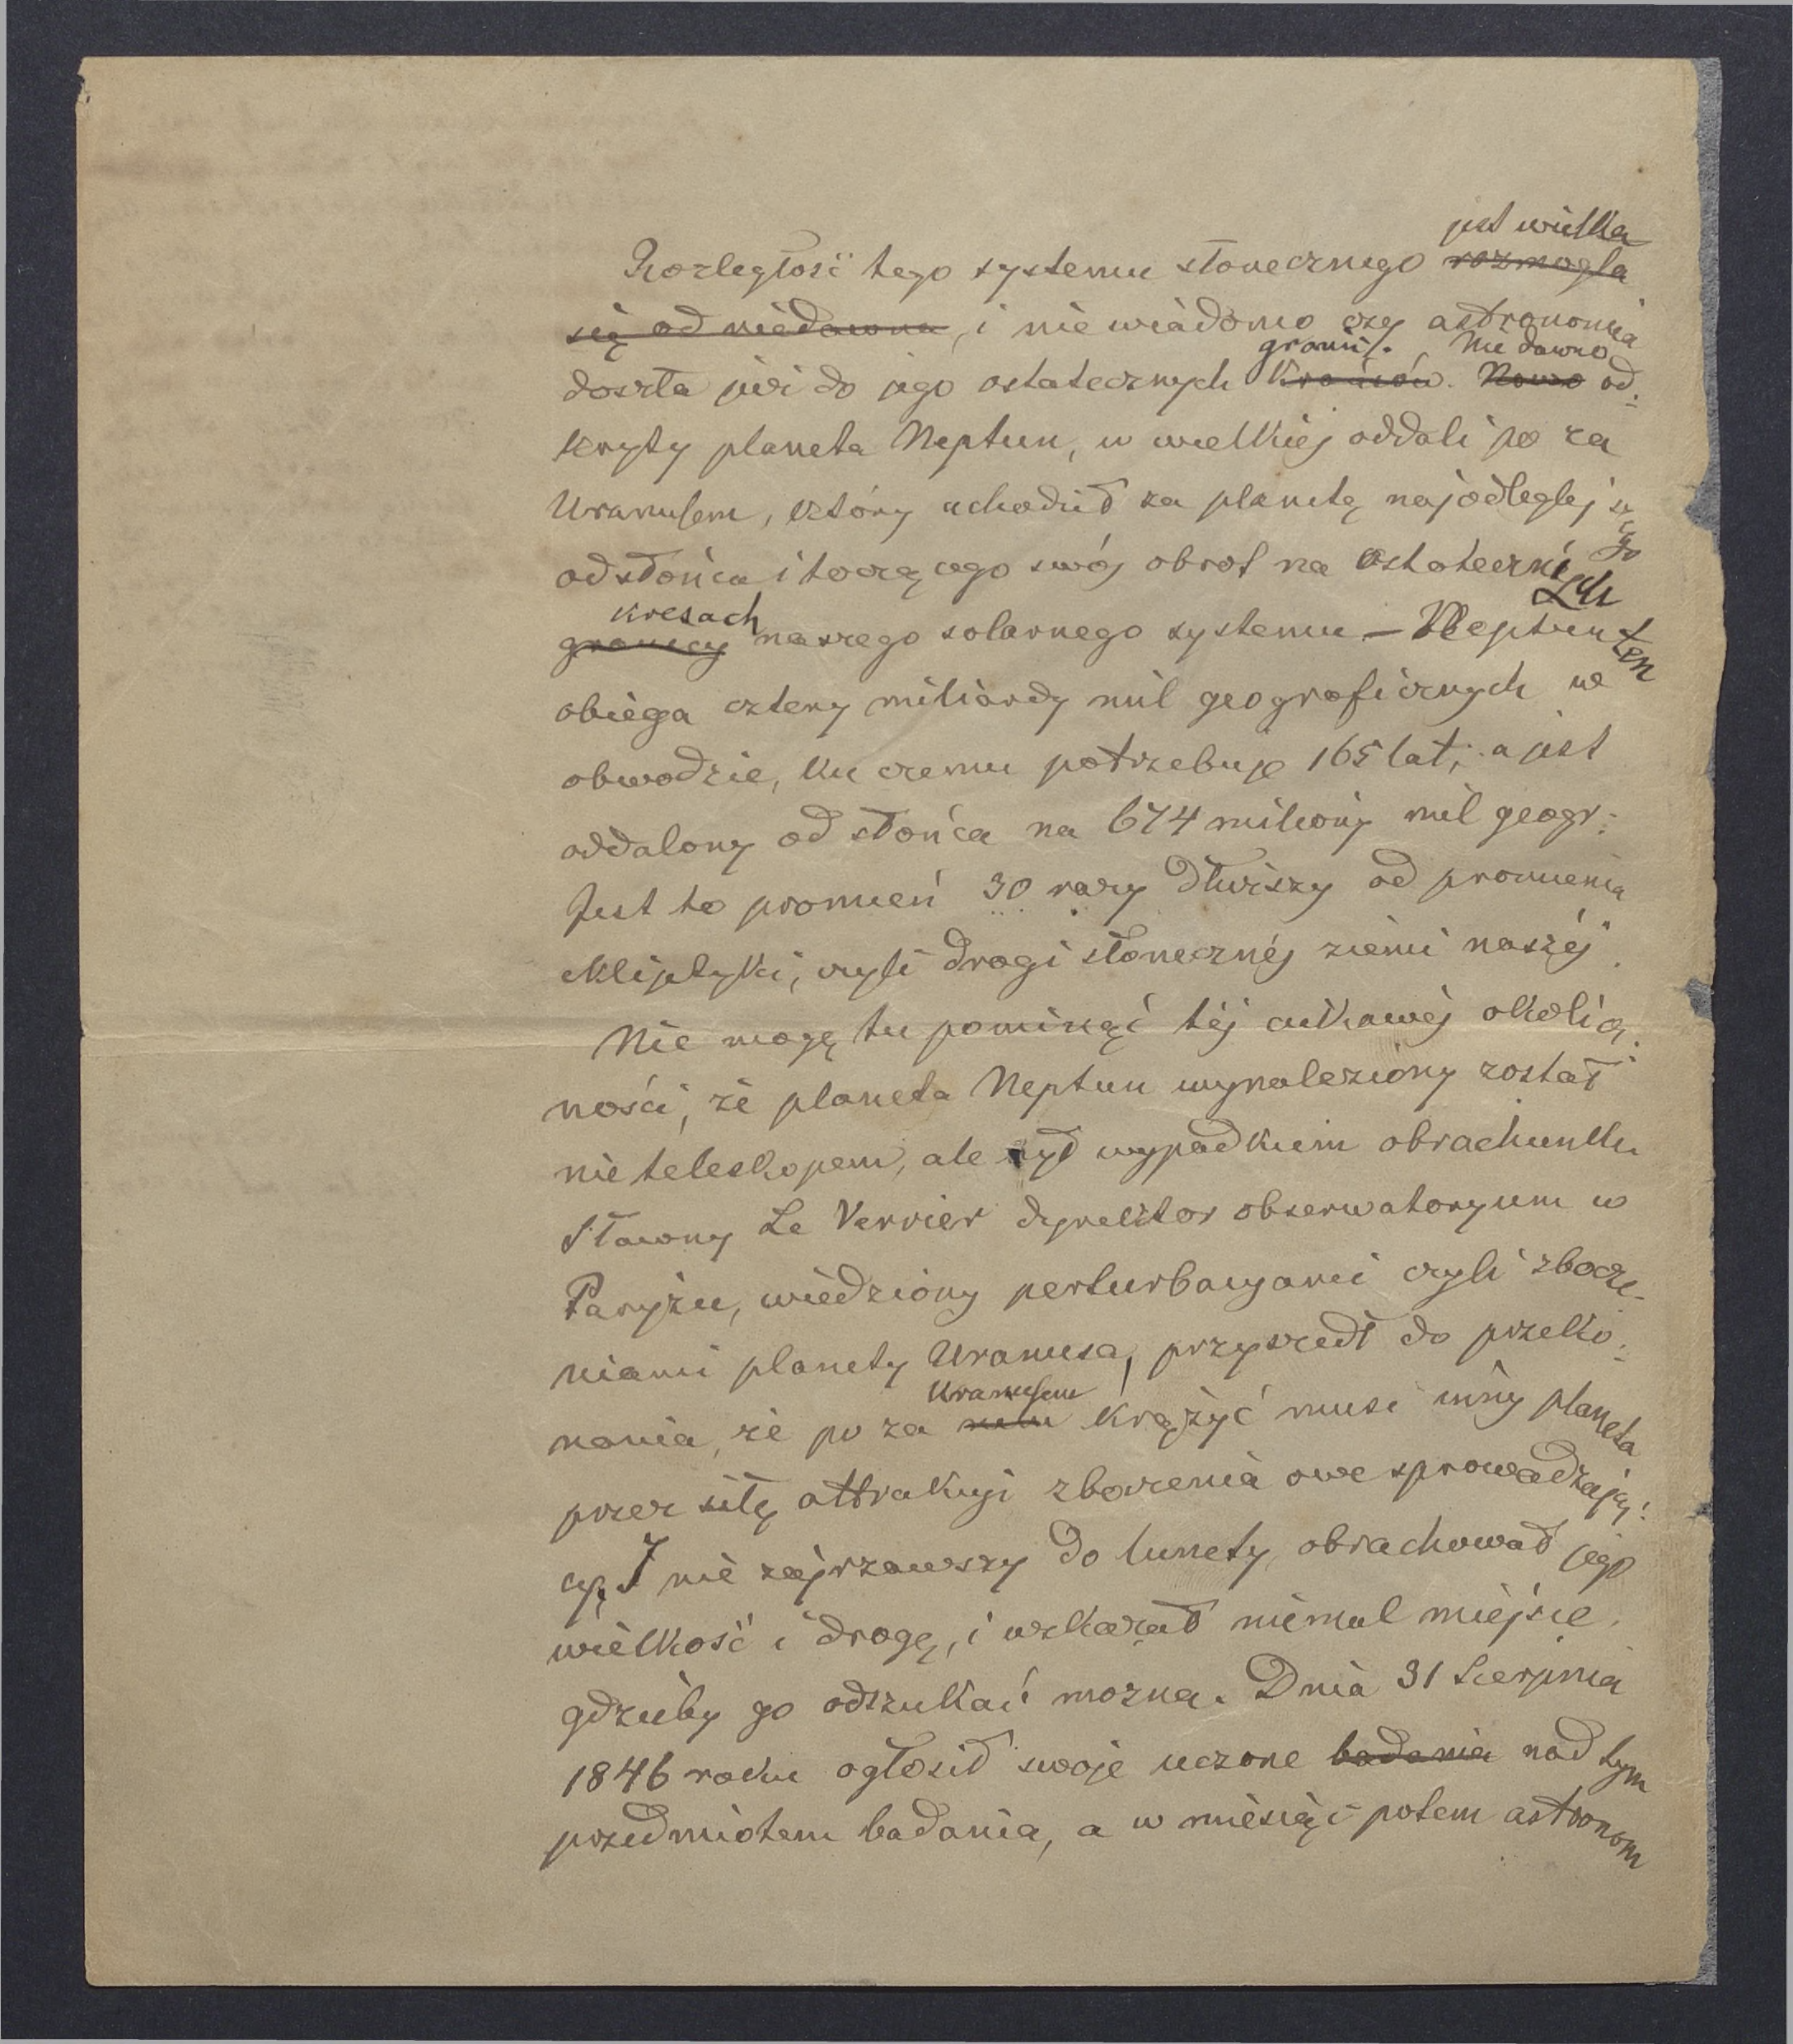 jest wielka
Rozległość tego systemu słonecznego rozmogła
się od niedawna, i nie wiadomo czy astronomia
granic. Nie dawno
doszła już do jego ostatecznych krańców. Nowo od-
kryty planeta Neptun, w wielkiej oddali po za
Uranusem, który uchodził za planetę najodleglejszego
od słońca i toczącego swój obrot na ostatecznych
kresach
granicy naszego solarnego systemu — Neptun ten
obiega cztery miliardy mil geograficznych w
obwodzie, ku czemu potrzebuje 165 lat; a jest
oddalony od słońca na 674 miliony mil geogr:
Jest to promień 30 razy dłuższy od promienia
ekliptyki, czyli drogi słonecznéj ziemi naszéj.
Nie mogę tu pominąć téj ciekawéj okolicz-
ności, że planeta Neptun wynaleziony został
nie teleskopem, ale był wypadkiem obrachunku
Sławny Le Verrier dyrektor obserwatoryum w
Paryżu, wiedziony perturbacyami czyli zbocze-
niami planety Uranusa, przyszedł do przeko-
Uranusem
nania, że po za nim krążyć musi inny planeta
przez siłę attrakcyi zboczenia owe sprowadzają-
cy. I nie zajrzawszy do lunety, obrachował jego
wielkość i drogę, i wskazał niemal miejsce,
gdzieby go odszukać można. Dnia 31 Sierpnia
1846 roku ogłosił swoje uczone badania nad tym
przedmiotem badania, a w miesiąc potem astronom